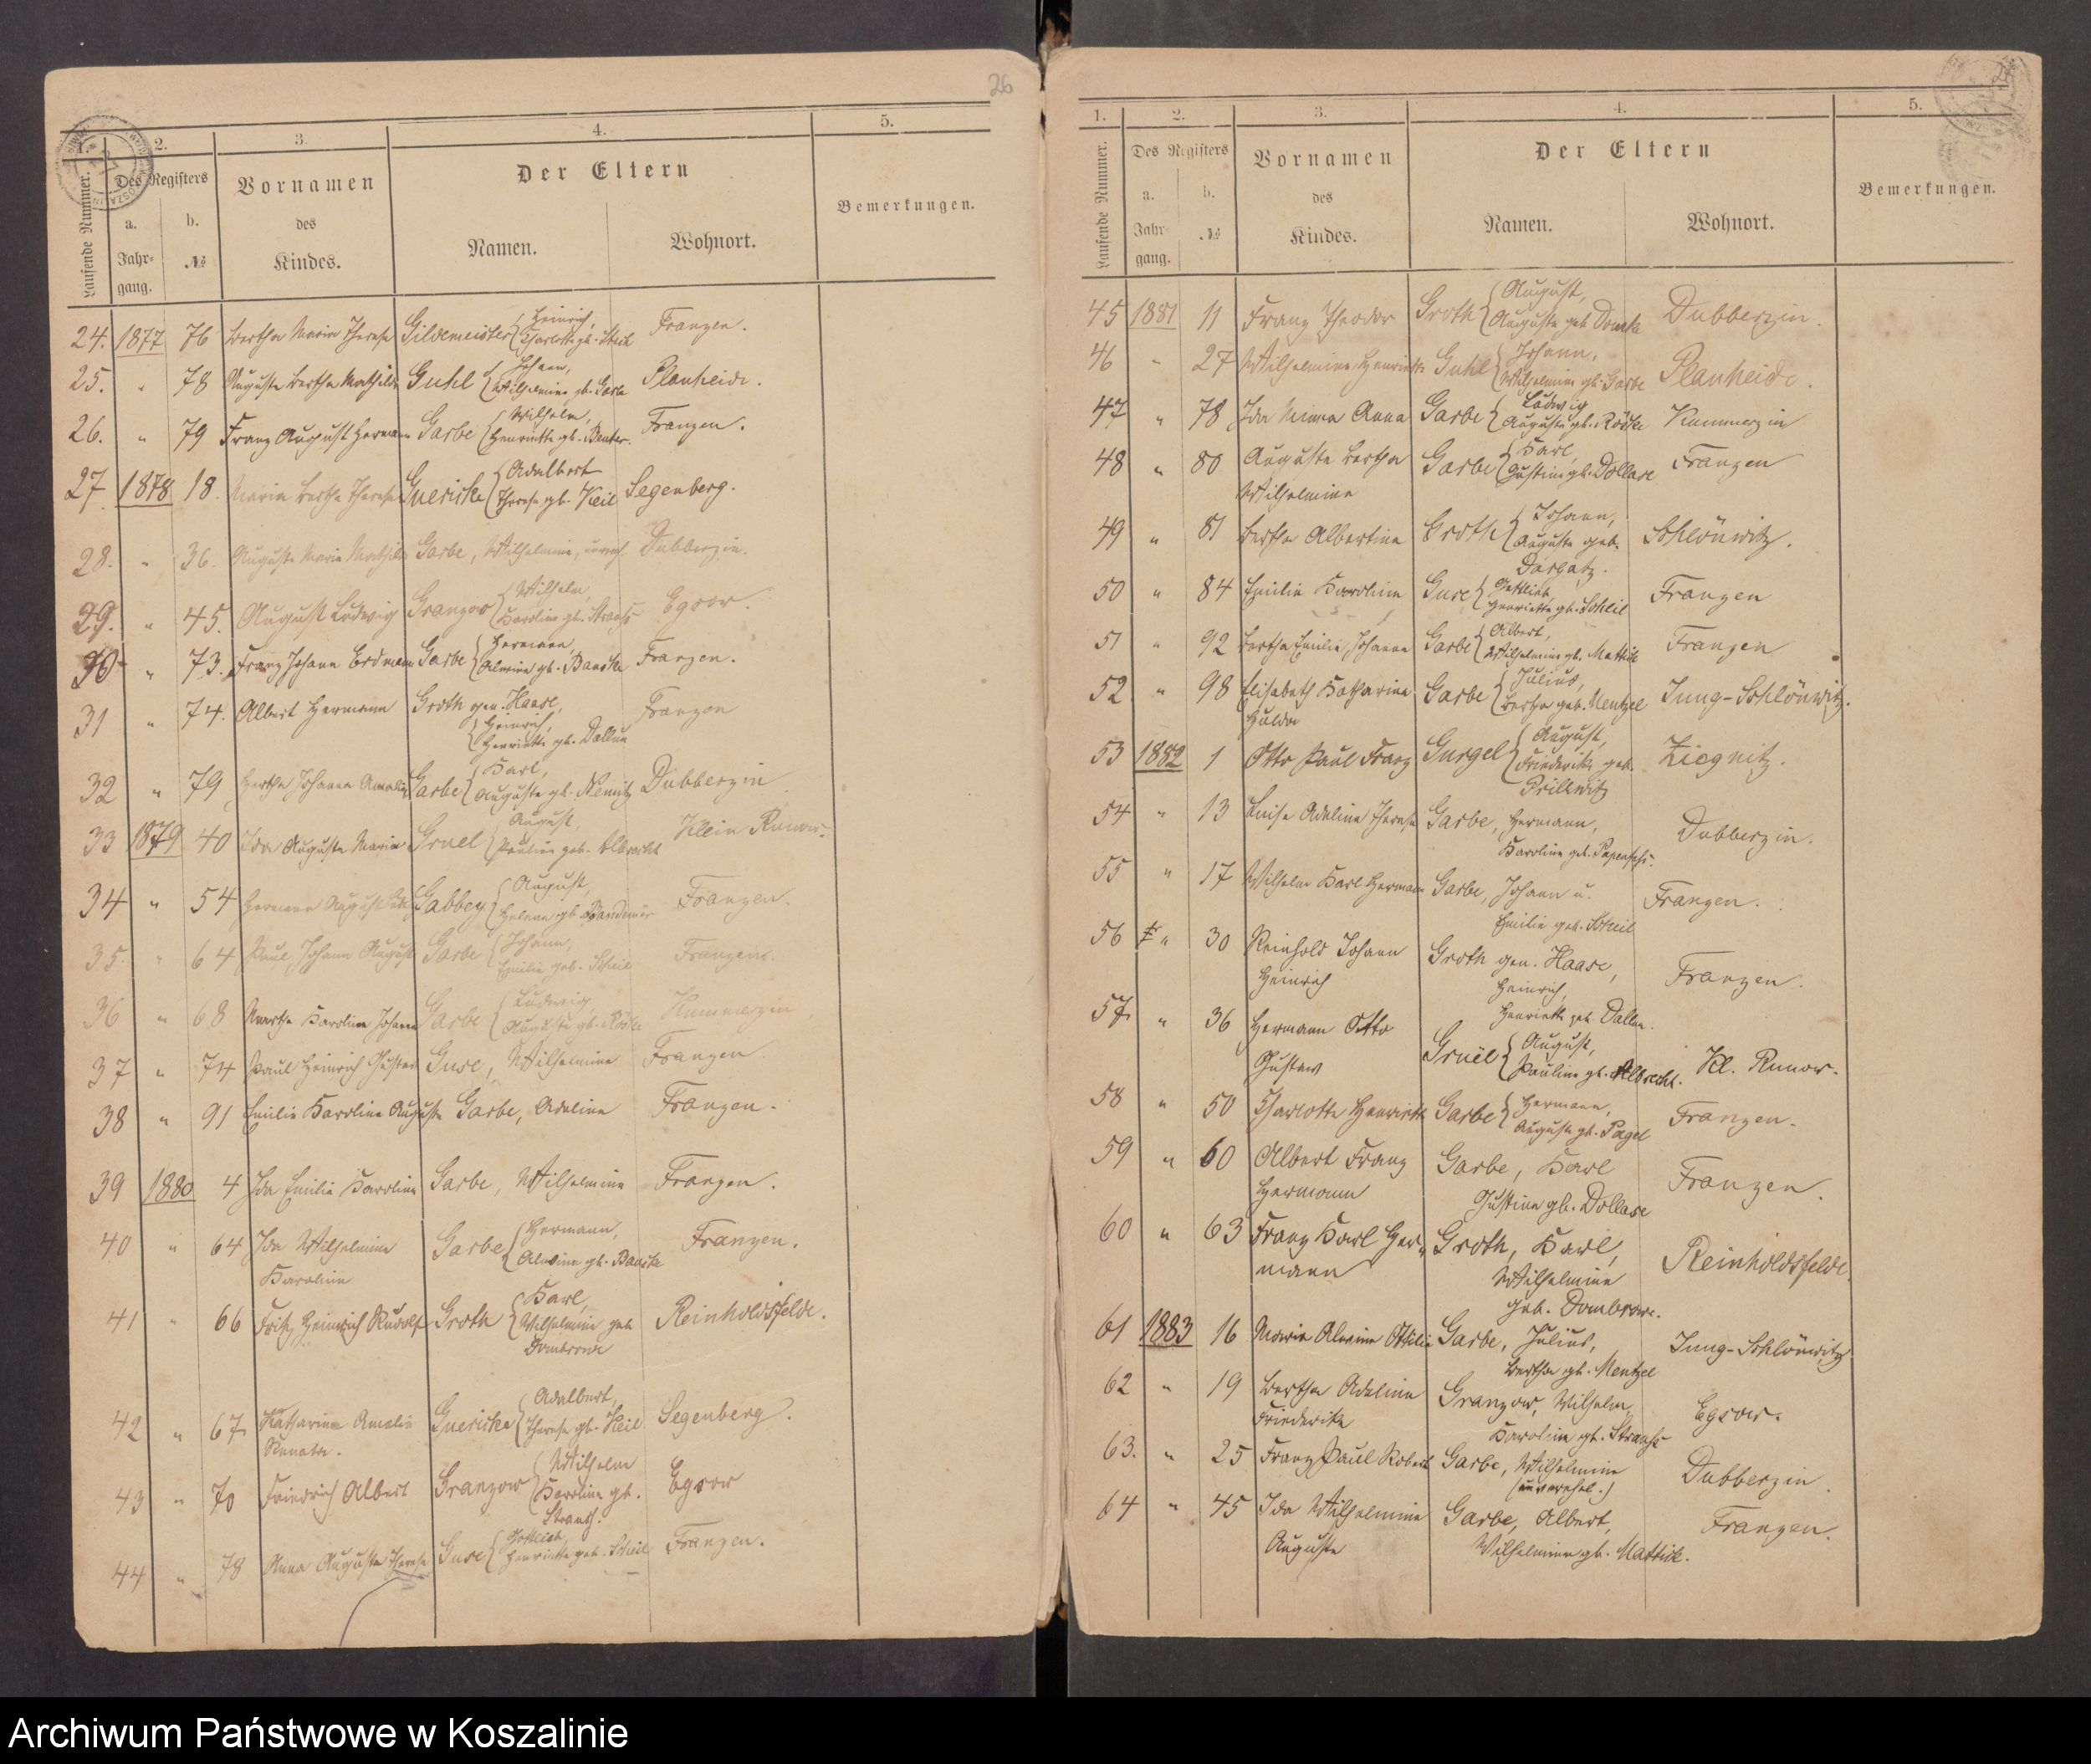 26
1. 2. 3. 4. 5.
Laufende Nummer. Des Registers Vornamen Der Eltern Bemerkungen.
a. b. des
Jahr- № Kindes. Namen. Wohnort.
gang.
24. 1877 76 Bertha Maria Therese Gildemeister Heinrich, Franzen.
Charlotte gb.
25. " 78 Auguste Bertha Mathilde Guhl Johann, Planheide.
Wilhelmine gb. Garbe
26. " 79 Franz August Hermann Garbe Wilhelm, Franzen.
Henriette gb.
27 1878 18. Maria Bertha Therese Guericke Adalbert Segenberg.
Therese gb. Keil
28. " 36. Auguste Marie Mathilde Garbe, Wilhelmine, Dubberzin.
29. " 45. August Ludwig Granzow Wilhelm, Egsow.
Karoline gb. Strauß
30 " 73. Franz Johann Erdmann Garbe Hermann Franzen.
Alwine gb. Banske
31 " 74. Albert Hermann Groth gen. Haase, Franzen
Heinrich,
Henriette gb. Dallun
32 " 79 Hertha Johanna Amalie Garbe Karl, Dubberzin
Auguste gb. Nemitz
33 1879 40 Ida Auguste Marie Gruel August, Klein Runow.
Pauline geb. Albrecht
34 " 54 Hermann August Gabbey August, Franzen.
Helene gb.
35. " 64 Paul Johann August Garbe Johann, Franzen.
Emilie geb. Scheil
36 " 68 Martha Karoline Johanna Garbe Ludwig Kummerzin
Auguste gb. Röske
37 " 74 Paul Heinrich Gustav Guse, Wilhelmine Franzen.
38 " 91 Emilie Karoline Auguste Garbe, Adeline Franzen.
39 1880 4 Ida Emilie Karoline Garbe, Wilhelmine Franzen.
40 " 64 Ida Wilhelmine Garbe Hermann, Franzen.
Karoline Alwine gb. Banske
41 " 66 Fritz Heinrich Rudolf Groth Karl, Reinholdsfelde.
Wilhelmine geb.
Dombrowe
42 " 67 Katharine Amalie Guericke Adalbert, Segenberg.
Renate. Therese gb. Keil
43 " 70 Friedrich Albert Granzow Wilhelm Egsow
Karoline gb.
Strauß.
44 " 78 Anna Auguste Therese Guse Gottlieb, Franzen.
Henriette geb. Scheil
1. 2. 3. 4. 5.
Laufende Nummer. Des Registers Vornamen Der Eltern Bemerkungen.
a. b. des
Jahr- № Kindes. Namen. Wohnort.
gang.
45 1881 11 Franz Theodor Groth August, Dubberzin.
Auguste geb.
46 " 27 Wilhelmine Henriette Guhl Johann, Planheide.
Wilhelmine gb. Garbe
47 " 78 Ida Minna Anna Garbe Ludwig Kummerzin
Auguste gb. Röske
48 " 80 Auguste Bertha Garbe Karl, Franzen
Wilhelmine Justine gb. Dollase
49 " 81 Bertha Albertine Groth Johann, Schlönwitz.
Auguste geb.
Dargatz.
50 " 84 Emilie Karoline Guse Gottlieb, Franzen
Henriette gb. Scheil
51 " 92 Bertha Emilie Johanna Garbe Albert, Franzen
Wilhelmine gb. Mattick
52. " 98 Elisabeth Katharina Garbe Julius, Jung-Schlönwitz.
Hulda Bertha geb. Mentzel
53 1882 1 Otto Paul Franz Gurgel August, Ziegnitz.
Friederike geb.
Prillwitz
54 " 13 Luise Adeline Therese Garbe, Hermann, Dubberzin.
Karoline geb. Papenfuß.
55 " 17 Wilhelm Karl Hermann Garbe, Johann u. Franzen.
Emilie geb. Scheil
56 " 30 Reinhold Johann Groth gen. Haase, Franzen.
Heinrich Heinrich,
Henriette geb. Dallun.
57 " 36 Hermann Otto Gruël August, Kl. Runow.
Gustav Pauline gb. Albrecht.
58 " 50 Charlotte Henriette Garbe Hermann, Franzen.
Auguste gb. Pagel
59 " 60 Albert Franz Garbe, Karl Franzen.
Hermann Justine gb. Dollase
60 " 63 Franz Karl Her- Groth, Karl, Reinholdsfelde.
mann Wilhelmine
geb. Dombrowe.
61 1883 16 Maria Alwine Ottilie Garbe, Julius, Jung-Schlönwitz
Bertha gb. Mentzel
62 " 19 Bertha Adeline Granzow, Wilhelm, Egsow.
Friederike Karoline gb. Strauß
63. " 25 Franz Paul Robert Garbe, Wilhelmine Dubberzin.
(unverehel.)
64 " 45 Ida Wilhelmine Garbe, Albert, Franzen.
Auguste Wilhelmine gb. Mattick.
Archiwum Państwowe w Koszalinie